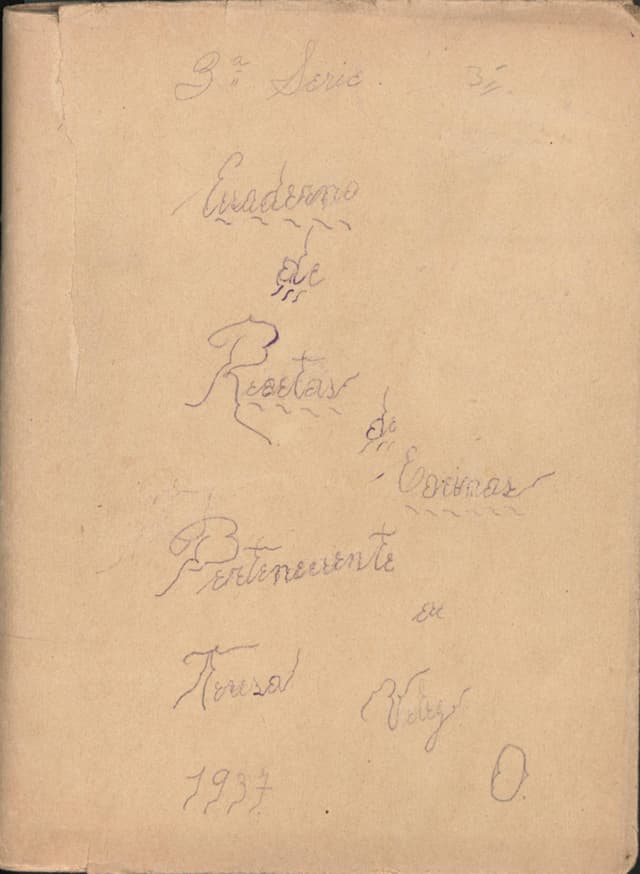 3ª Serie. 3ª
Cuaderno
de
Recetas
de
Cocina
Perteneciente
a
Teresa Velez
O.
1937